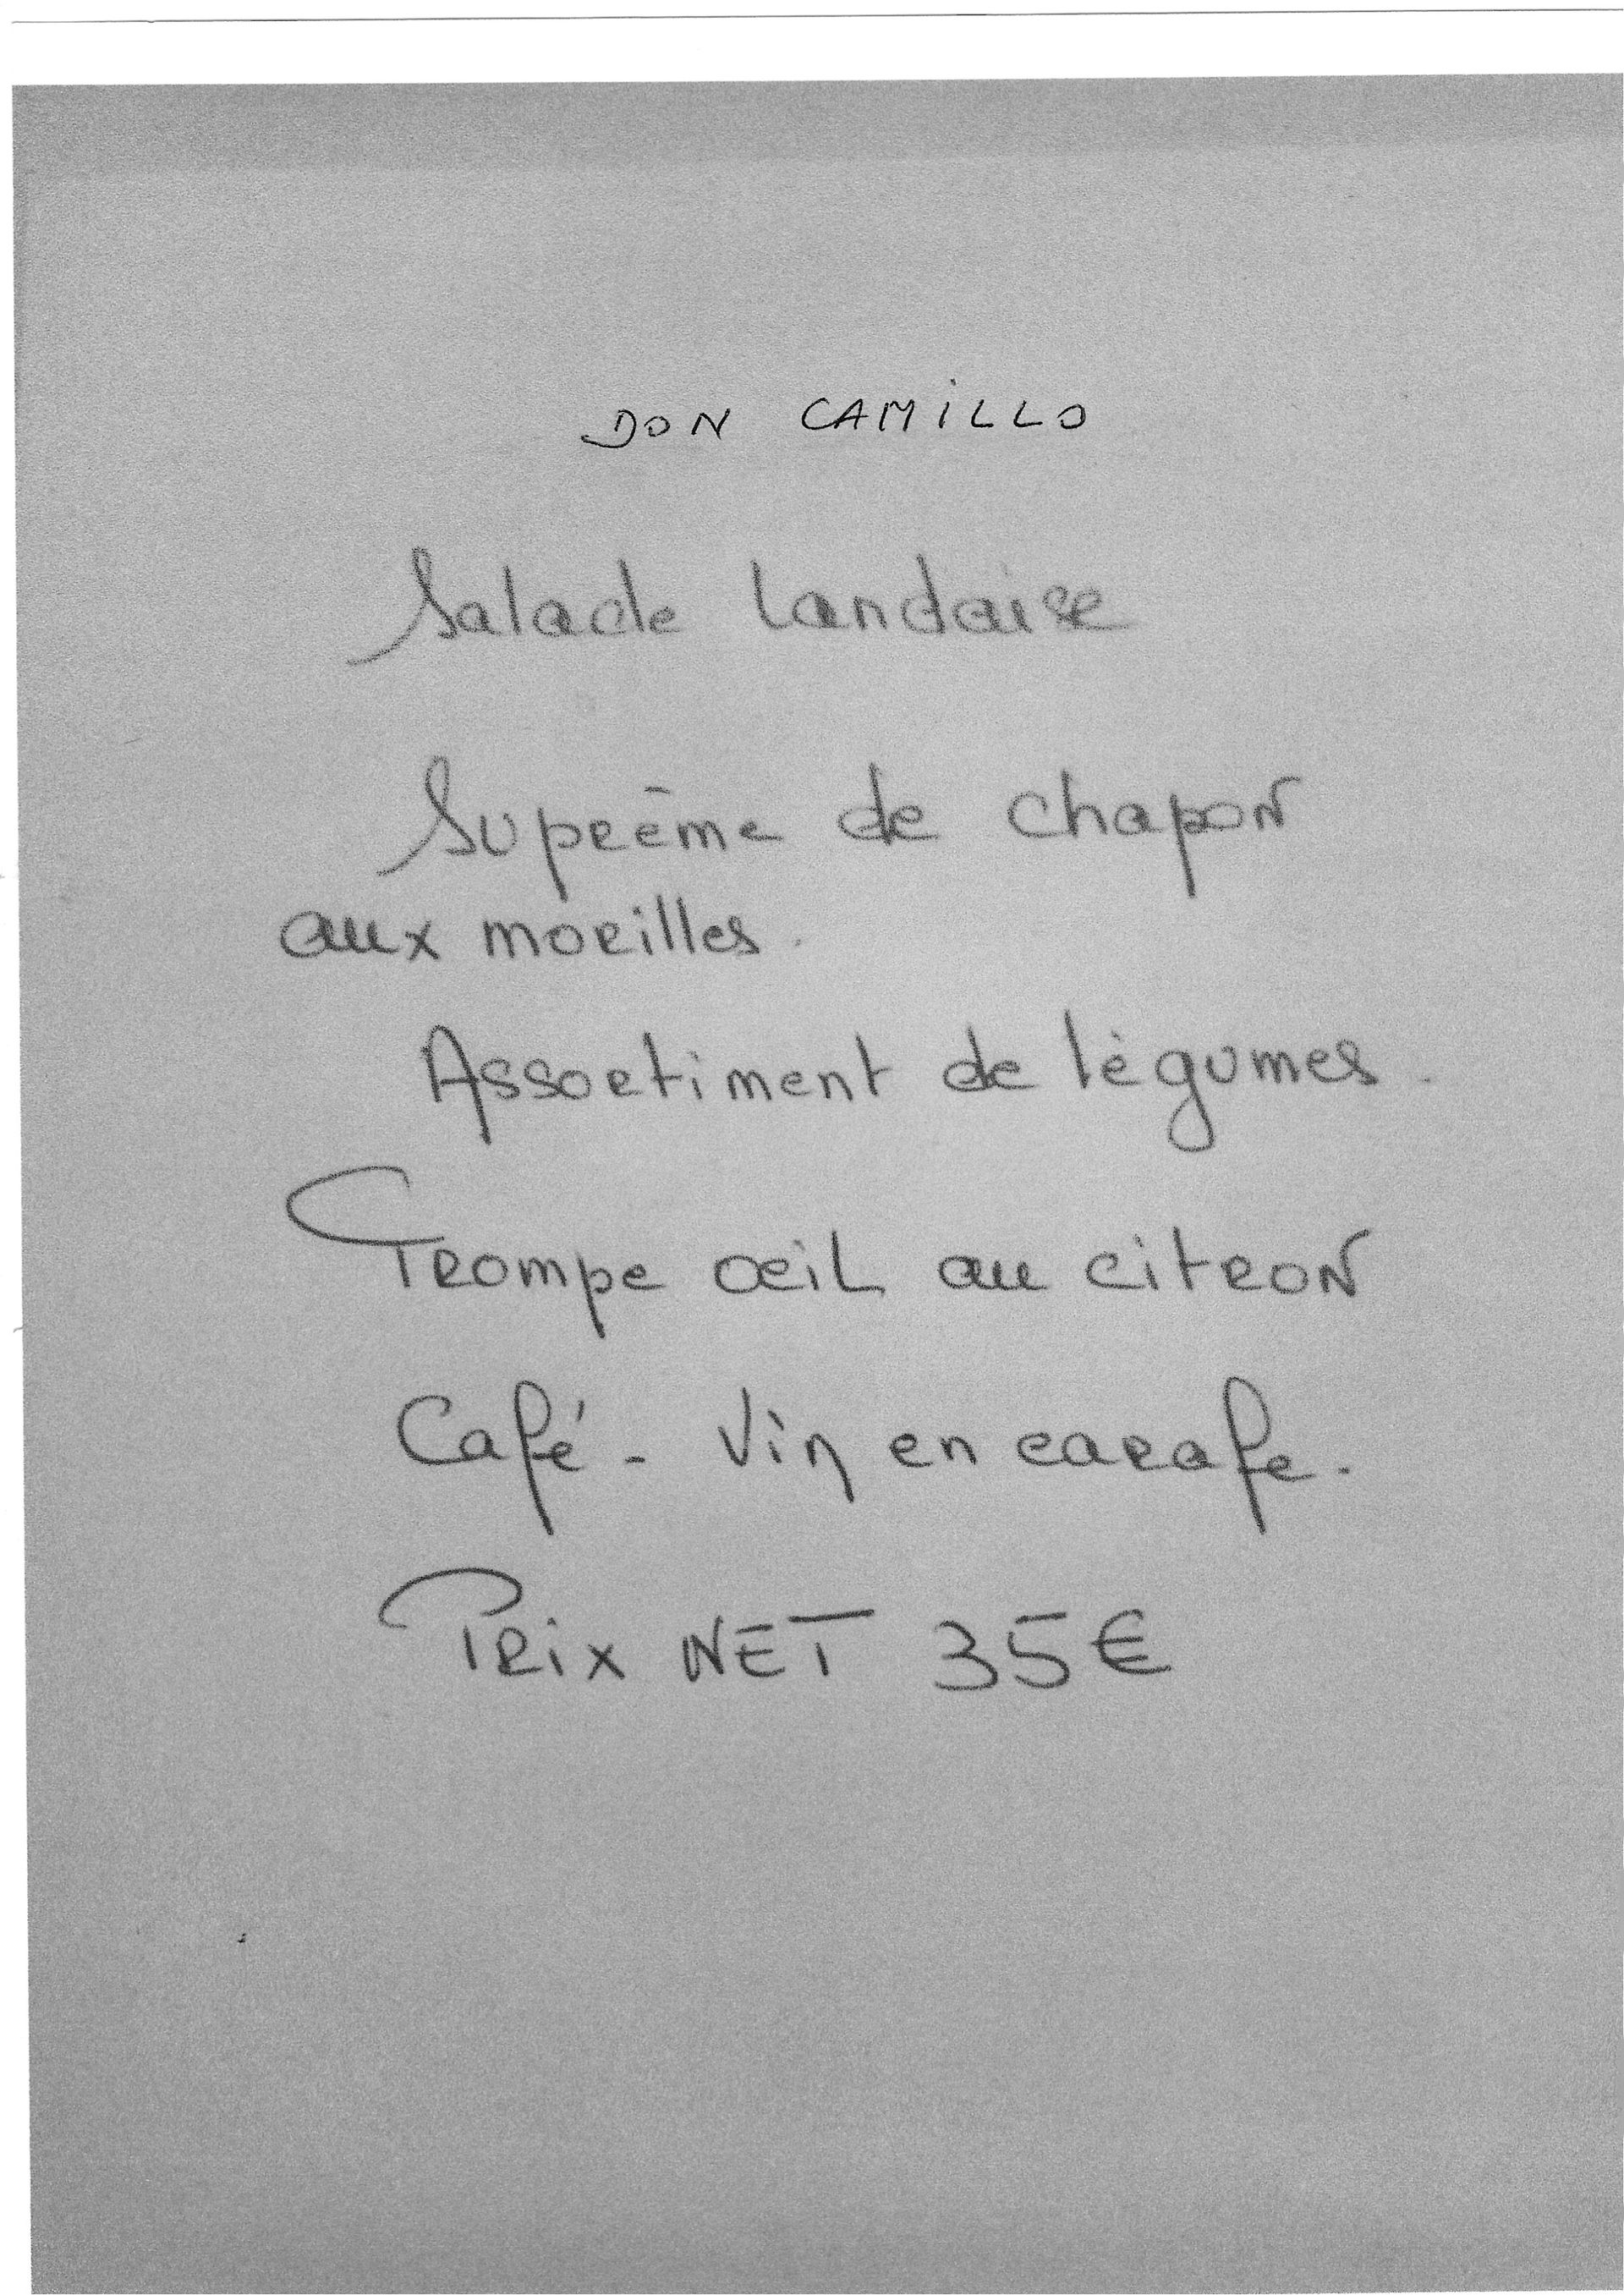 DON CAMiLLO
Salade landaise
Suprême de chapon
aux morilles.
Assortiment de légumes.
Trompe œil au citron
Café - Vin en carafe.
Prix NET 35€